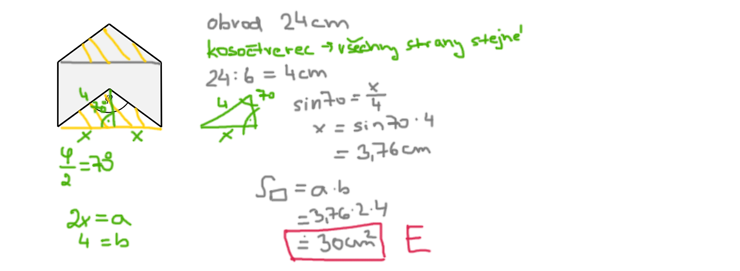 obvod 24cm
kosočtverec → všechny strany stejné
24 : 6 = 4cm
4 70
x
sin70 = x/4
x = sin70 · 4
= 3,76cm
4 70°
x x
φ/2 = 70°
2x = a
4 = b
S▭ = a·b
= 3,76·2·4
≐ 30cm² E